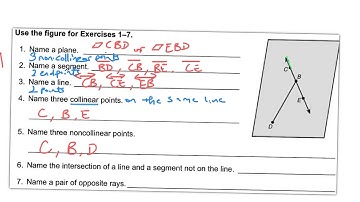 Use the figure for Exercises 1–7.
1. Name a plane. ▱ CBD or ▱ EBD
3 noncollinear points
2. Name a segment. BD, CB, BE, CE
2 endpoints
3. Name a line. CB, CE, EB
2 points
4. Name three collinear points. on the same line
C, B, E
5. Name three noncollinear points.
C, B, D
6. Name the intersection of a line and a segment not on the line.
7. Name a pair of opposite rays.
C
B
E
D